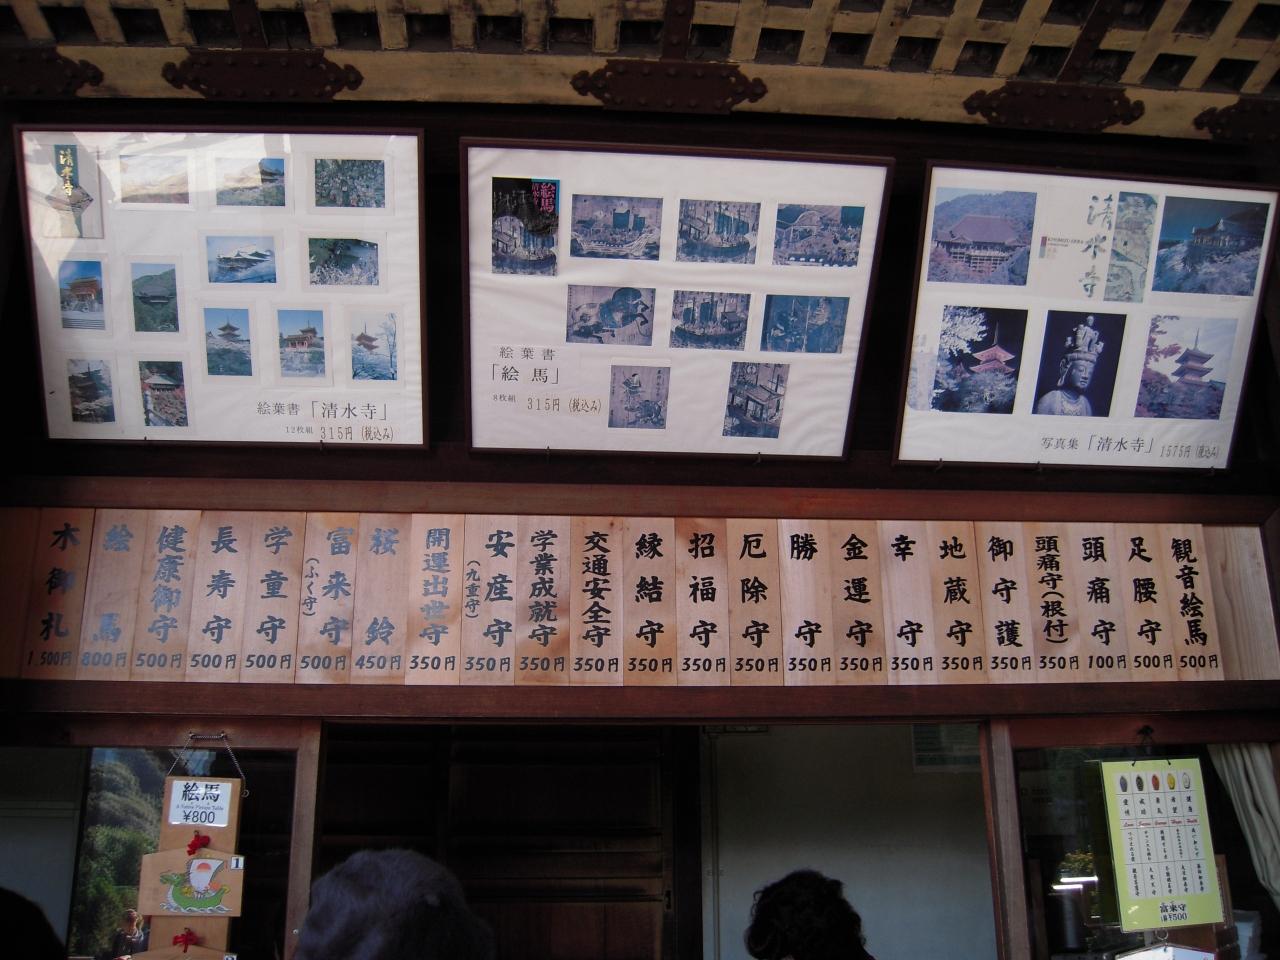 清水寺
絵葉書「清水寺」
12枚組 315円(税込み)
絵馬
清水寺
絵葉書
「絵馬」
8枚組 315円(税込み)
清水寺
写真集「清水寺」
1575円(税込み)
木御札 1,500円
絵馬 800円
健康御守 500円
長寿守 500円
学童守 500円
富来守(ふく守) 500円
桜鈴 450円
開運出世守 350円
安産守(九重守) 350円
学業成就守 350円
交通安全守 350円
縁結守 350円
招福守 350円
厄除守 350円
勝守 350円
金運守 350円
幸守 350円
地蔵守 350円
御守護 350円
頭痛守(根付) 350円
頭痛守 100円
足腰守 500円
観音絵馬 500円
絵馬
¥800
1
愛情 成功 勇気 希望 健康
Love Success Courage Hope Health
富来守
¥500